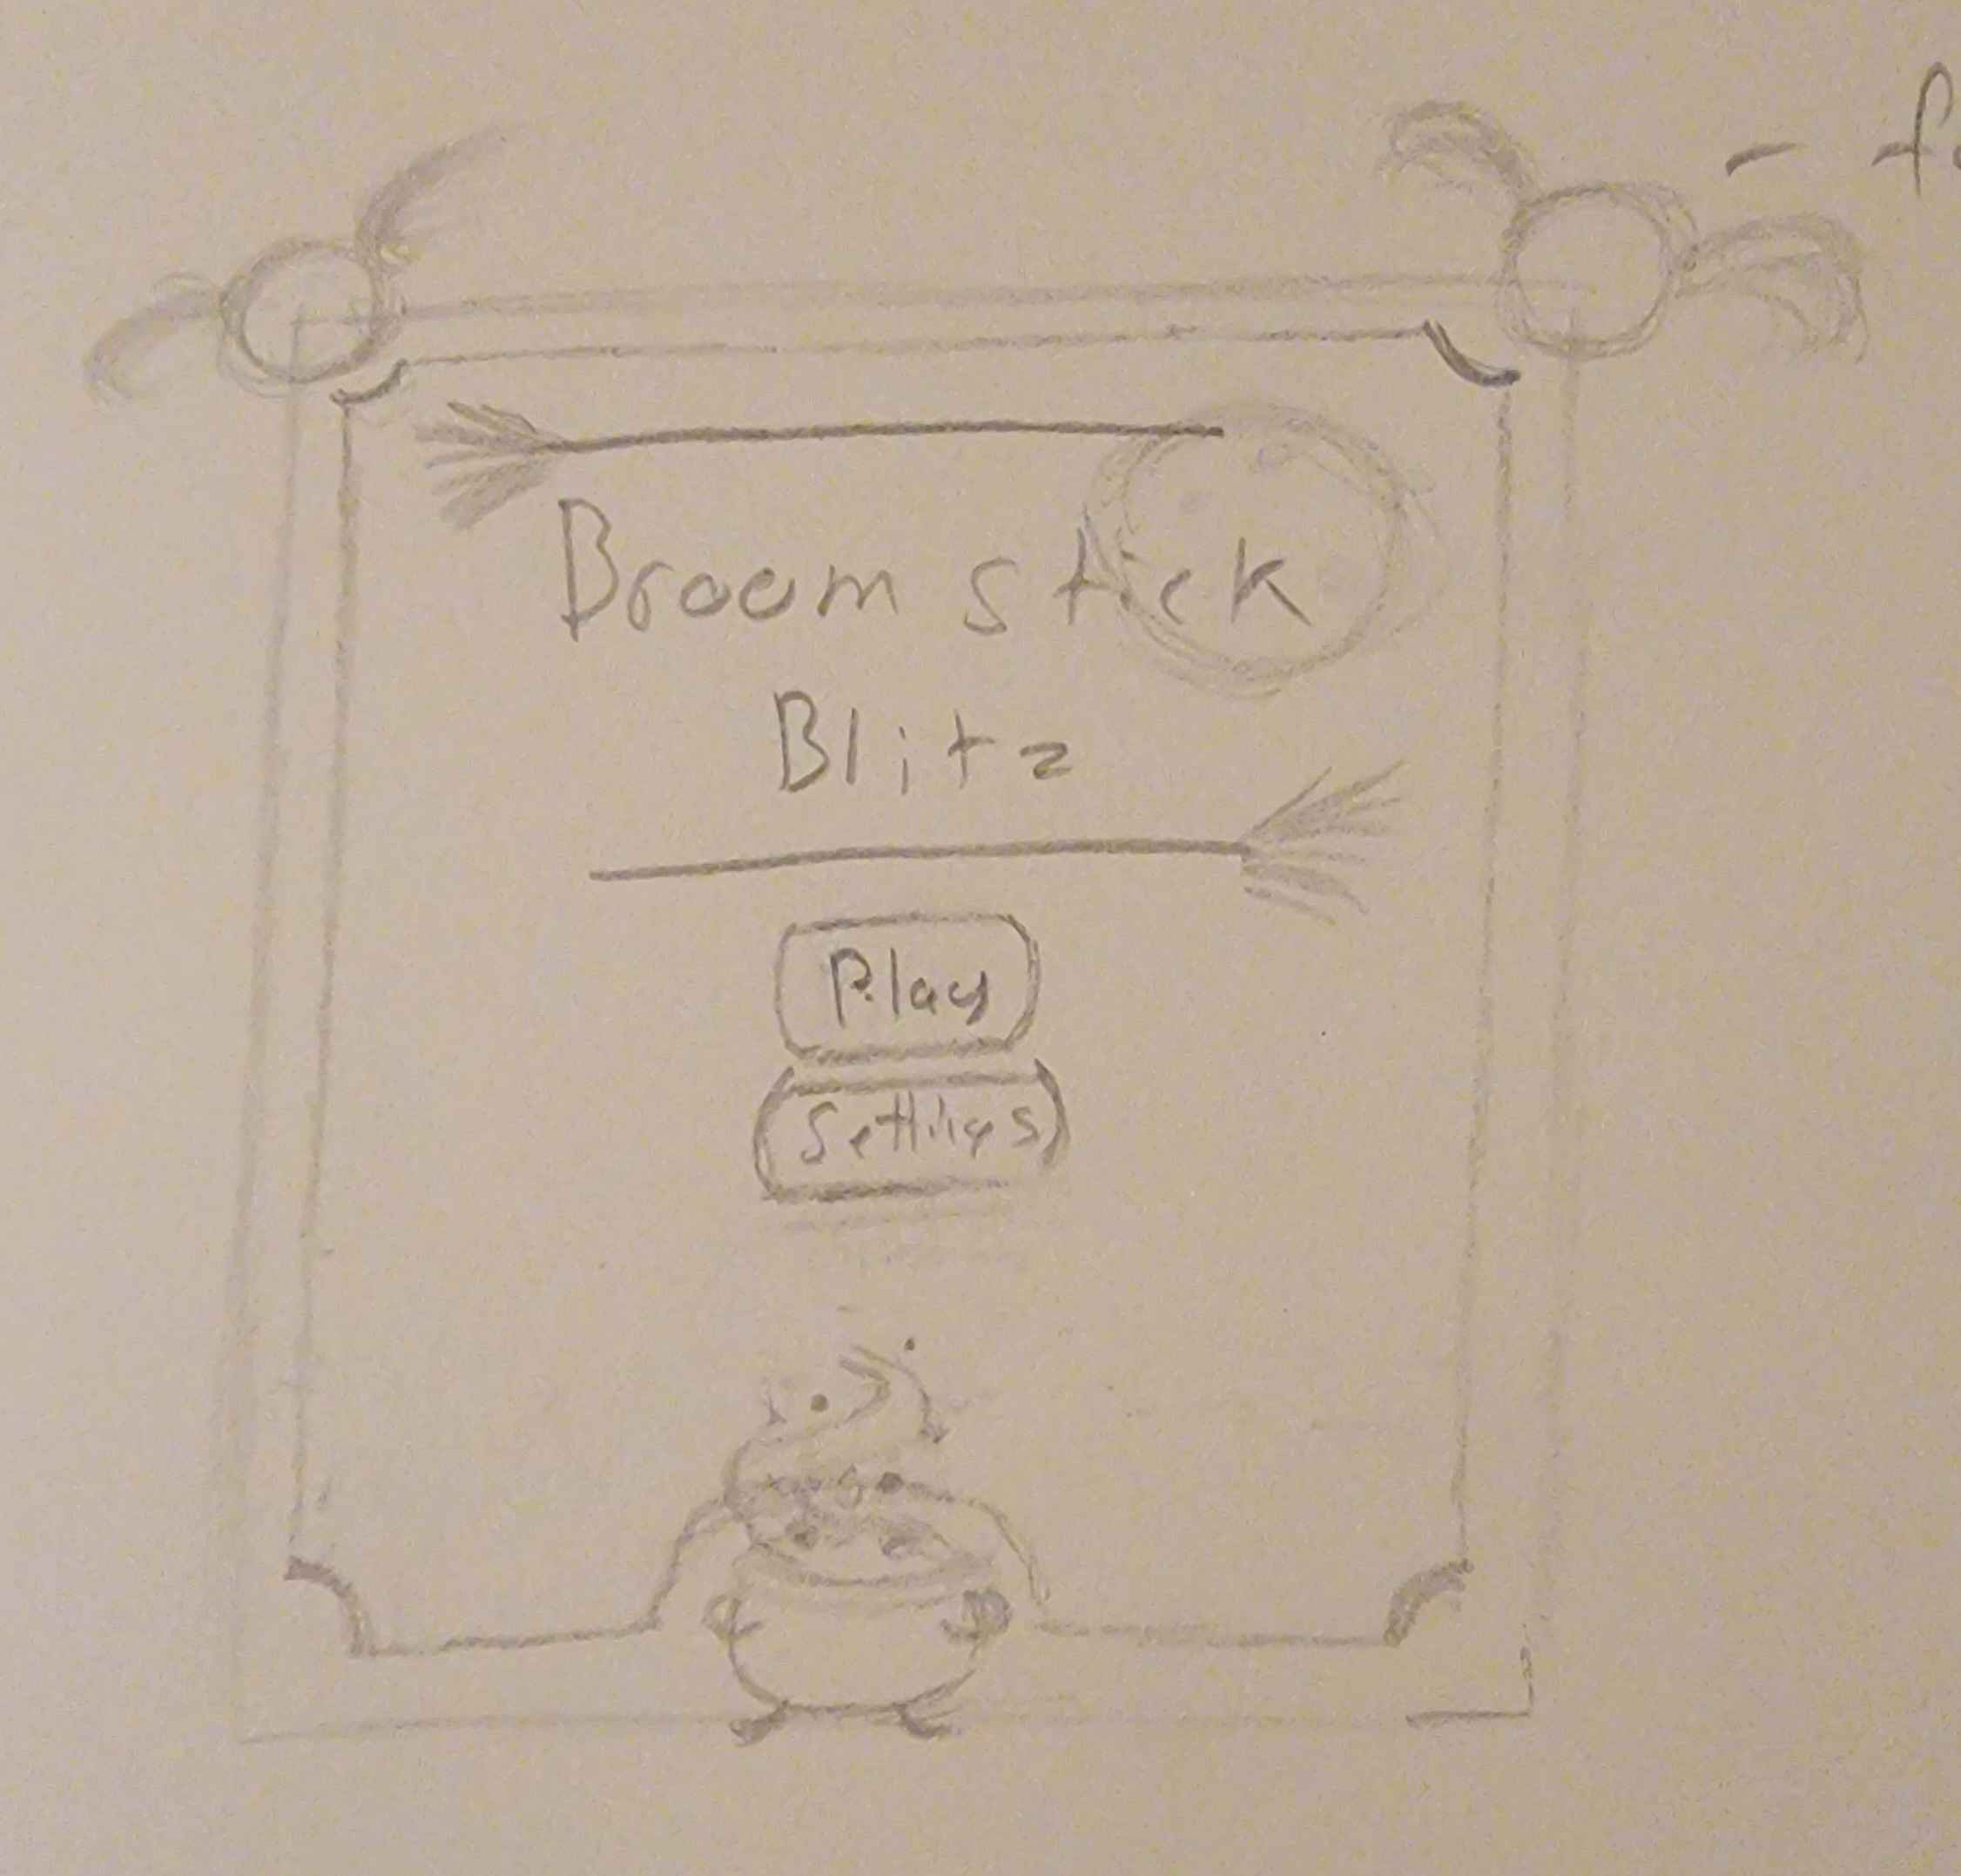 Broom stick
Blitz
Play
Settings